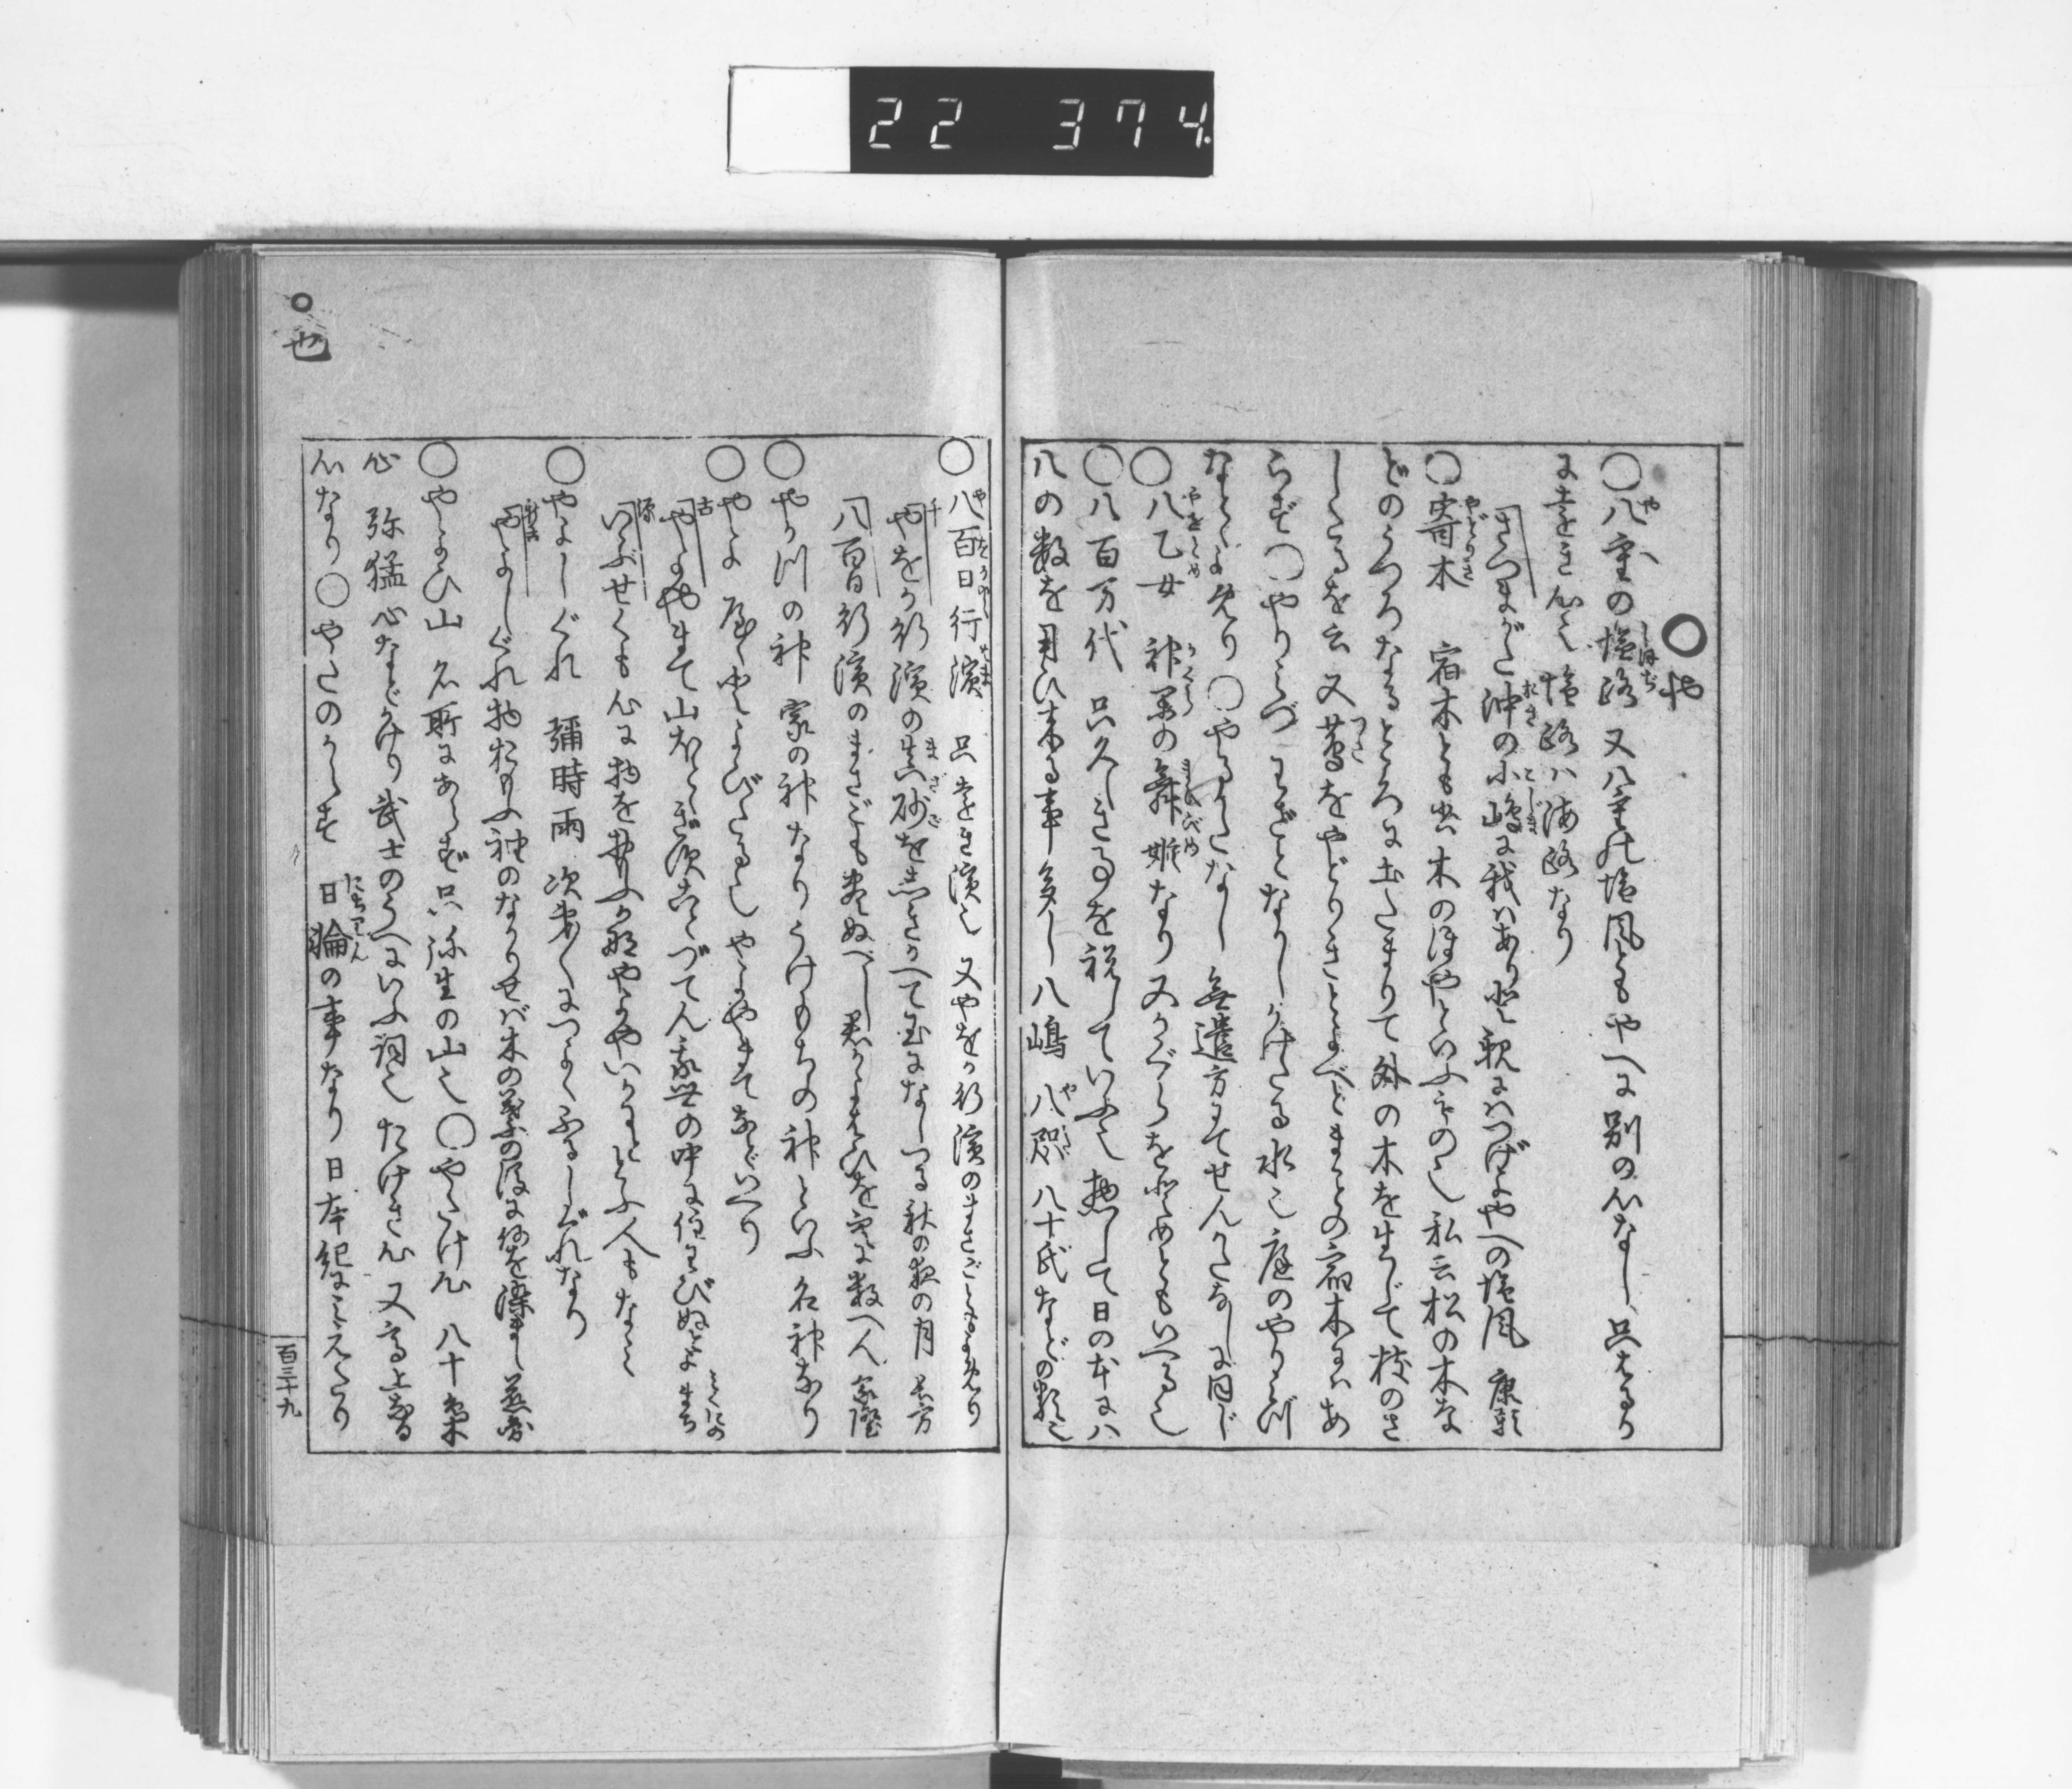 22 374.
○や
○八重の塩路 又八重の塩風ともやへに別の心なし只はるか
に遠き心也 塩路ハ海路なり
さつまがた沖の小嶋に我はありと親にハつげよやへの塩風 康頼
○寄木 宿木とも書 木のほやといふもの也 私云松の木な
どのうつろなるところに土たまりて外の木を生じて枝のさ
したるを云 又蔦をやどりきとよべどまことの宿木にハあ
らず○やりみづ わざとながしかけたる水也 庭のやり水
などよめり ○やるかたなし 無遣方にてせんかたなしに同じ
○八乙女 神楽の舞姫なり 又かぐらをとめともいへる也
○八百万代 只久しき事を祝していふ也 惣して日の本にハ
八の数を用ひ来る事多し 八嶋 八咫 八十氏などの類也
○八百日行濱 只遠き濱也 又やをか行濱のまさごとよめり
千 やをか行濱の真砂をしきかへて玉になしつる秋の夜の月 長方
八百日行濱のまさごも尽ぬべし君がよはひを家に数へん 家隆
○やか川の神 家の神なり うけもちの神といふ名神なり
○やよ 屋よとよびたる也 やよやまてなどいへり
古 やよやまて山ほとゝぎすことづてん我世の中に住わびぬとよ みくにのまち
源 いぶせくも心に物を思ふかなやよやいかにととふ人もなみ
○やよしぐれ 彌時雨 次第〱につよくふるしぐれなり
新古 やよしぐれ物おもふ袖のなかりせば木の葉の後に何を染まし 慈圓
○やよひ山 名所にあらず只弥生の山也 ○やたけ心 八十梟
心 弥猛心などかけり 武士のうへにいふ詞也 たけき心 又高上なる
心なり○やたのからす 日輪の事なり 日本紀にみえたり
○也
百三十九